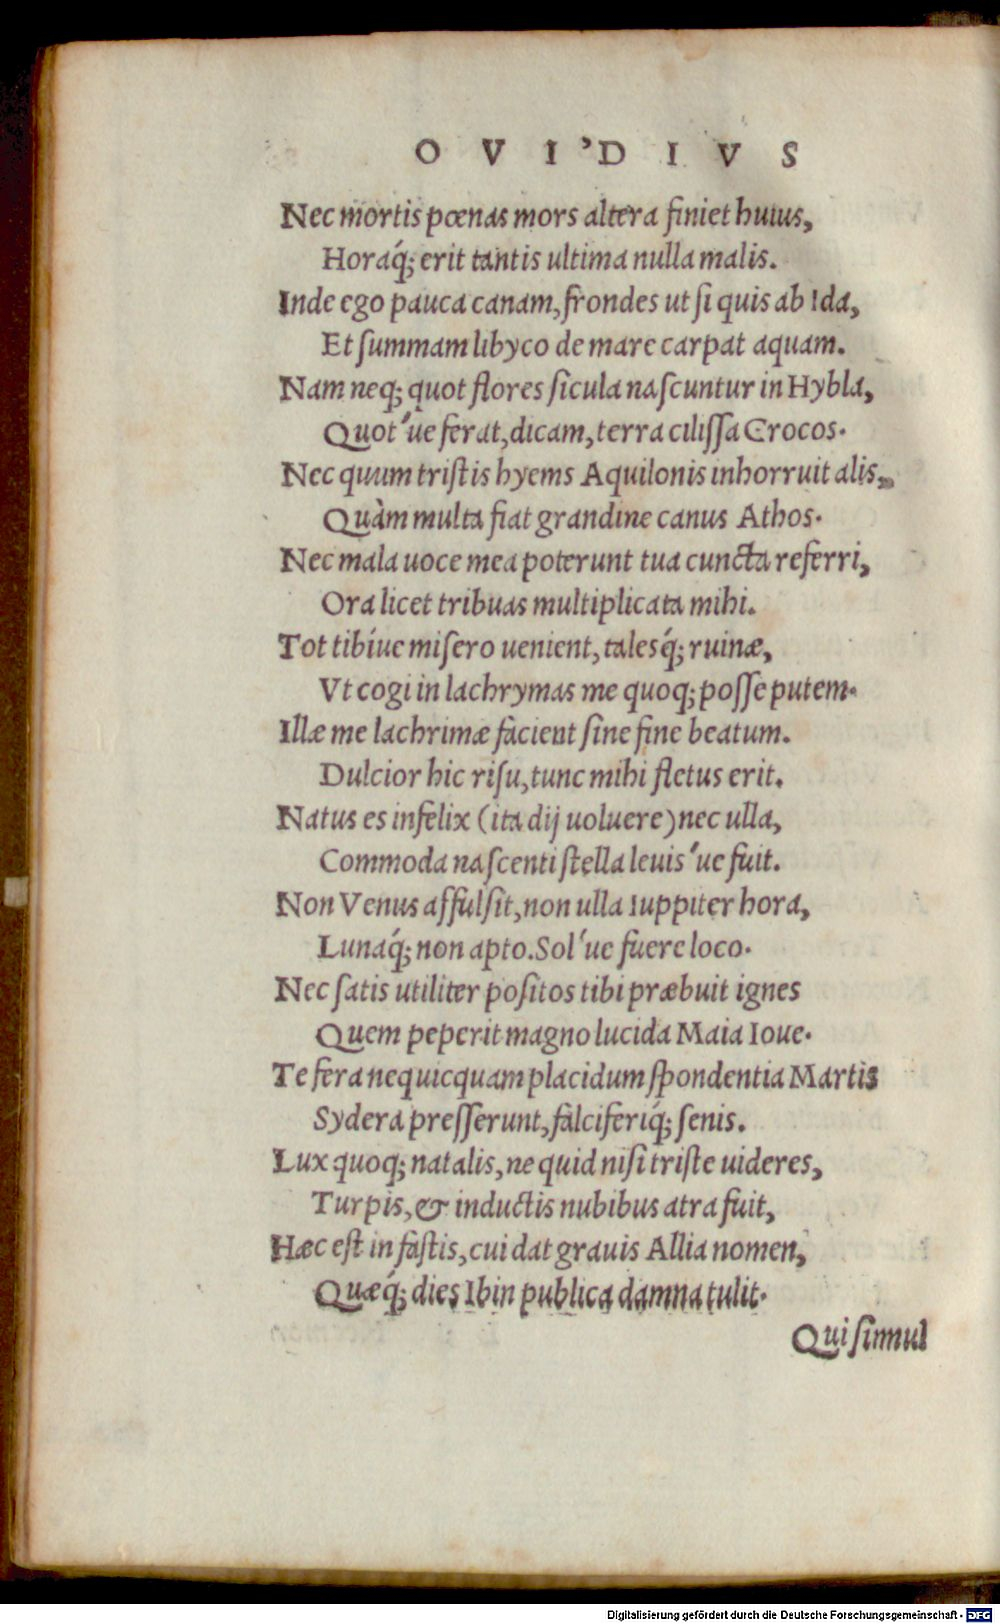 OVI'DIVS
Nec mortis pœnas mors altera finiet huius,
Horaq́; erit tantis ultima nulla malis.
Inde ego pauca canam, frondes ut si quis ab Ida,
Et summam libyco de mare carpat aquam.
Nam neq; quot flores sicula nascuntur in Hybla,
Quot'ue ferat, dicam, terra cilissa Crocos.
Nec quum tristis hyems Aquilonis inhorruit alis,
Quàm multa fiat grandine canus Athos.
Nec mala uoce mea poterunt tua cuncta referri,
Ora licet tribuas multiplicata mihi.
Tot tibíue misero uenient, talesq́; ruinæ,
Vt cogi in lachrymas me quoq; posse putem.
Illæ me lachrimæ facient sine fine beatum.
Dulcior hic risu, tunc mihi fletus erit.
Natus es infelix (ita dij uoluere) nec ulla,
Commoda nascenti stella leuis'ue fuit.
Non Venus affulsit, non ulla Iuppiter hora,
Lunaq́; non apto. Sol'ue fuere loco.
Nec satis utiliter positos tibi præbuit ignes
Quem peperit magno lucida Maia Ioue.
Te fera nequicquam placidum spondentia Martis
Sydera presserunt, falciferiq́; senis.
Lux quoq; natalis, ne quid nisi triste uideres,
Turpis, & inductis nubibus atra fuit,
Hæc est in fastis, cui dat grauis Allia nomen,
Quæq́; dies Ibin publica damna tulit.
Qui simul
Digitalisierung gefördert durch die Deutsche Forschungsgemeinschaft - DFG